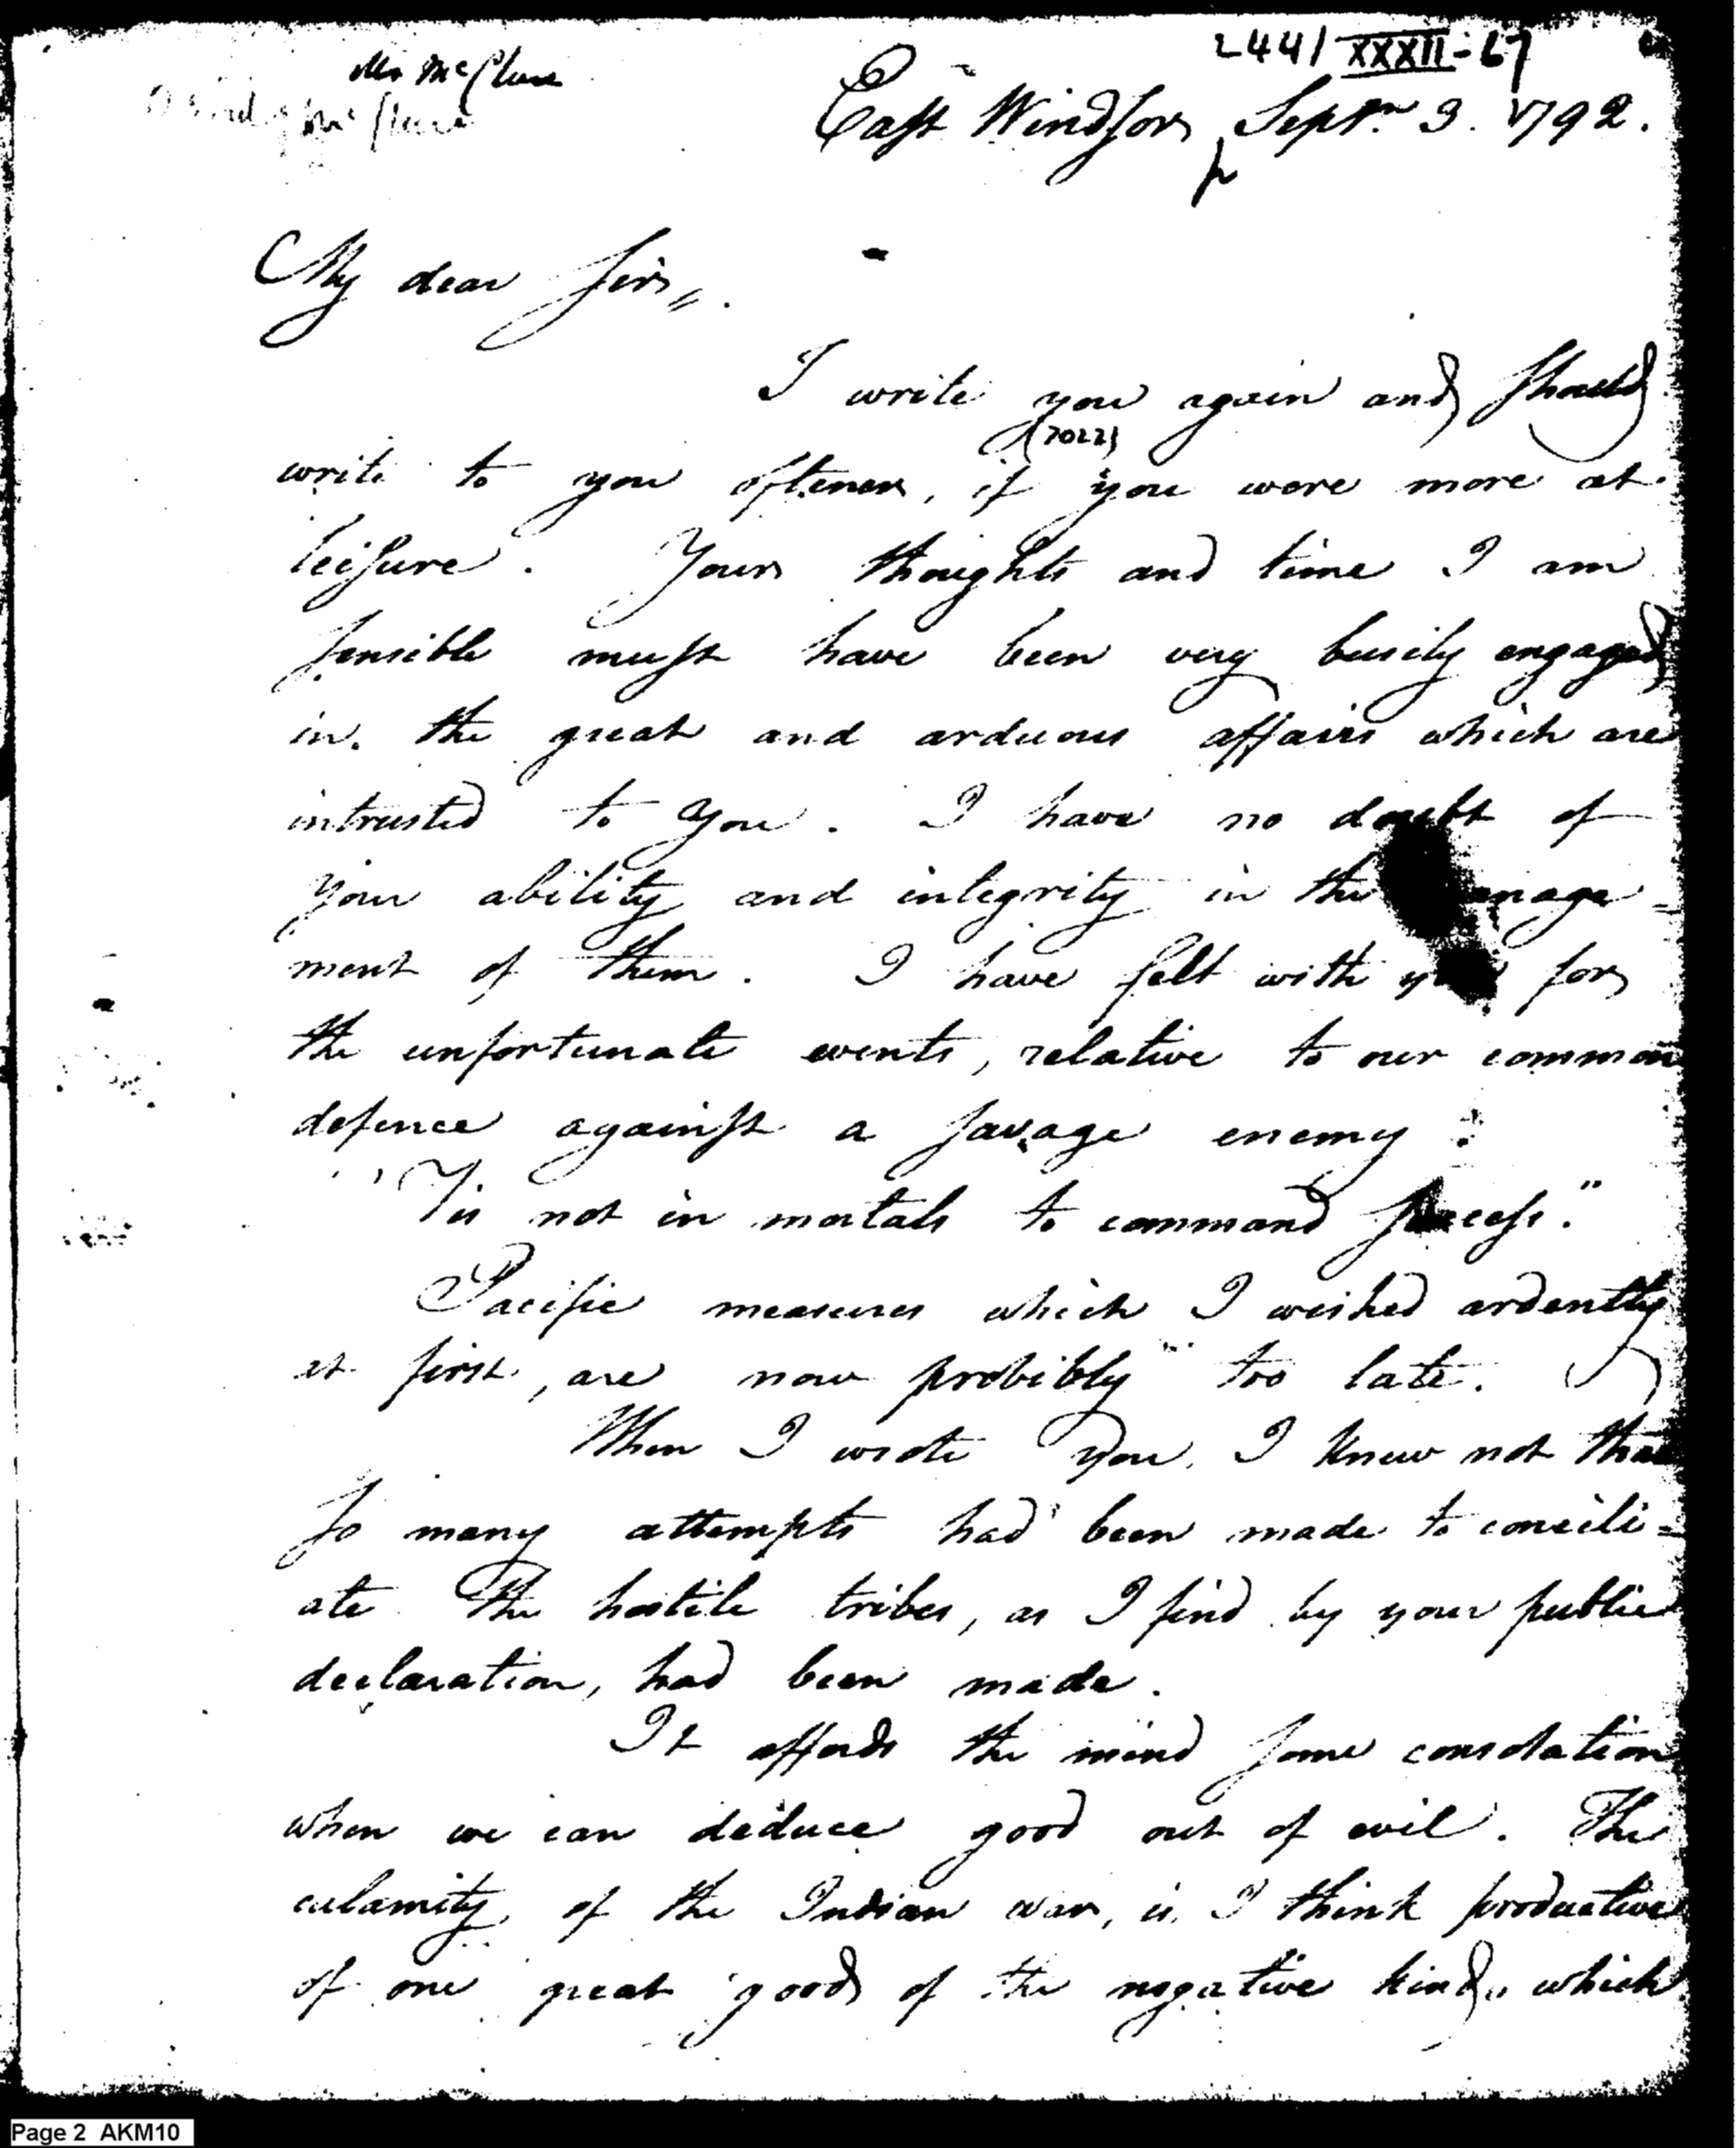 2441 XXXII-67
Mr McClure
East Windsor, Septr. 3. 1792.
My dear Sir,
I write you again and should
(7022)
write to you oftener, if you were more at
leisure. Your thoughts and time I am
sensible must have been very busily engaged
in the great and arduous affairs which are
intrusted to you. I have no doubt of
your ability and integrity in the manage=
ment of them. I have felt with you for
the unfortunate events, relative to our common
defence against a savage enemy.
"Tis not in mortals to command success."
Pacific measures which I wished ardently
at first, are now probibly too late.
When I wrote you, I knew not that
so many attempts had been made to concili=
ate the hostile tribes, as I find by your public
declaration, had been made.
It affords the mind some consolation
when we can deduce good out of evil. The
calamity of the Indian war, is, I think productive
of one great good of the negative kind, which
Page 2 AKM10